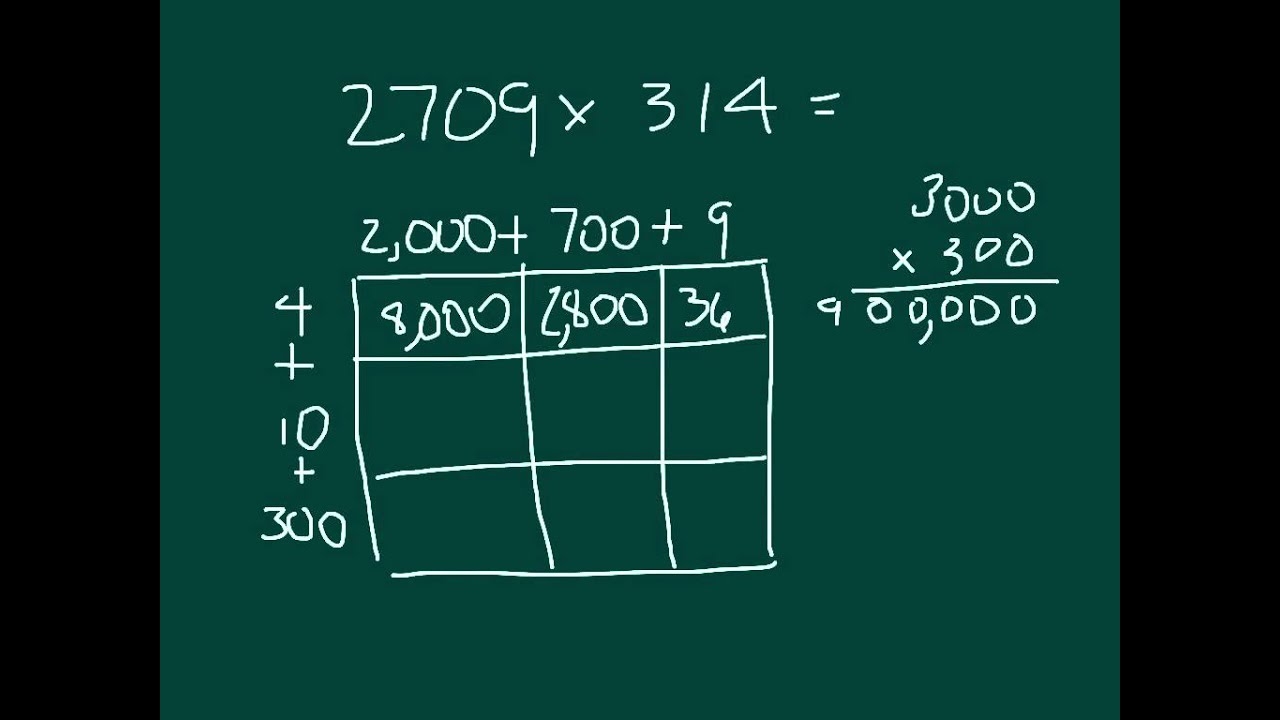 2709 × 314 =
2,000 + 700 + 9
4 8,000 2,800 36
+
10
+
300
3000
× 300
900,000